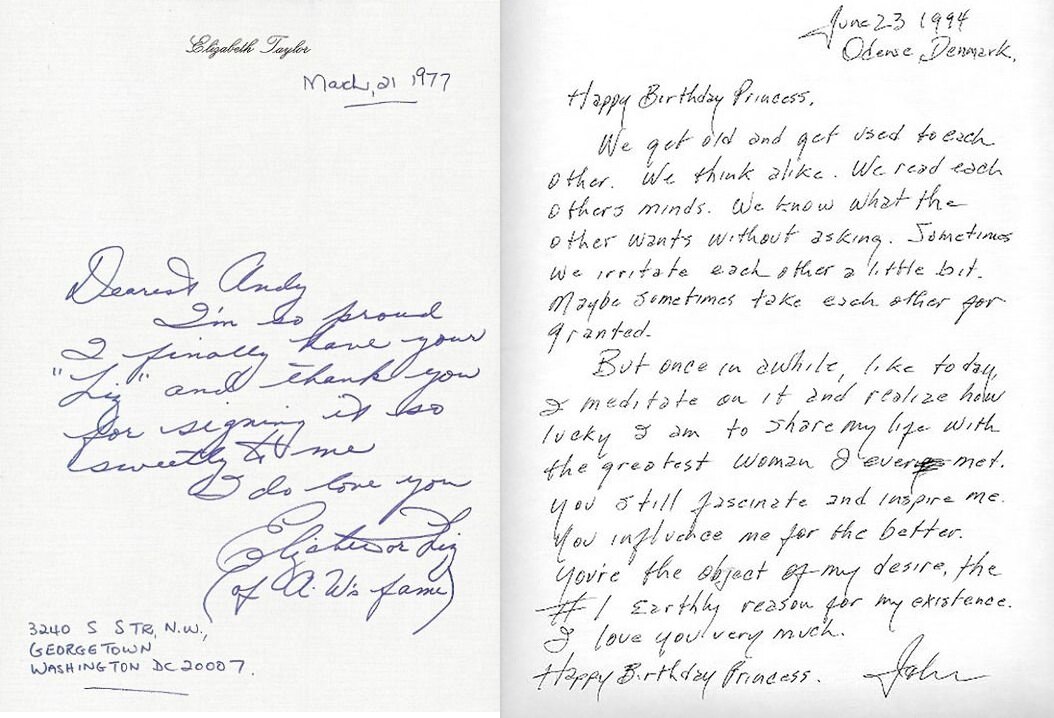 Elizabeth Taylor
Mach, 21 1977
Dearest Andy
I'm so proud
I finally have your
"Liz" and thank you
for signing it so
sweetly to me
I do love you
Elizabeth or Liz
(of A. W's fame)
3240 S STR, N.W.,
GEORGETOWN
WASHINGTON DC 20007.
June 23 1994
Odense, Denmark.
Happy Birthday Princess,
We get old and get used to each
other. We think alike. We read each
others minds. We know what the
other wants without asking. Sometimes
we irritate each other a little bit.
Maybe sometimes take each other for
granted.
But once in awhile, like today,
I meditate on it and realize how
lucky I am to share my life with
the greatest woman I ever met.
You still fascinate and inspire me.
You influence me for the better.
You're the object of my desire, the
#1 Earthly reason for my existence.
I love you very much.
Happy Birthday Princess.
John